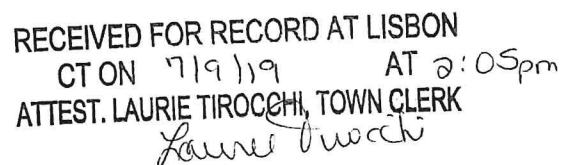 RECEIVED FOR RECORD AT LISBON
CT ON 7/9/19 AT 2:05pm
ATTEST. LAURIE TIROCCHI, TOWN CLERK
Laurie Tirocchi